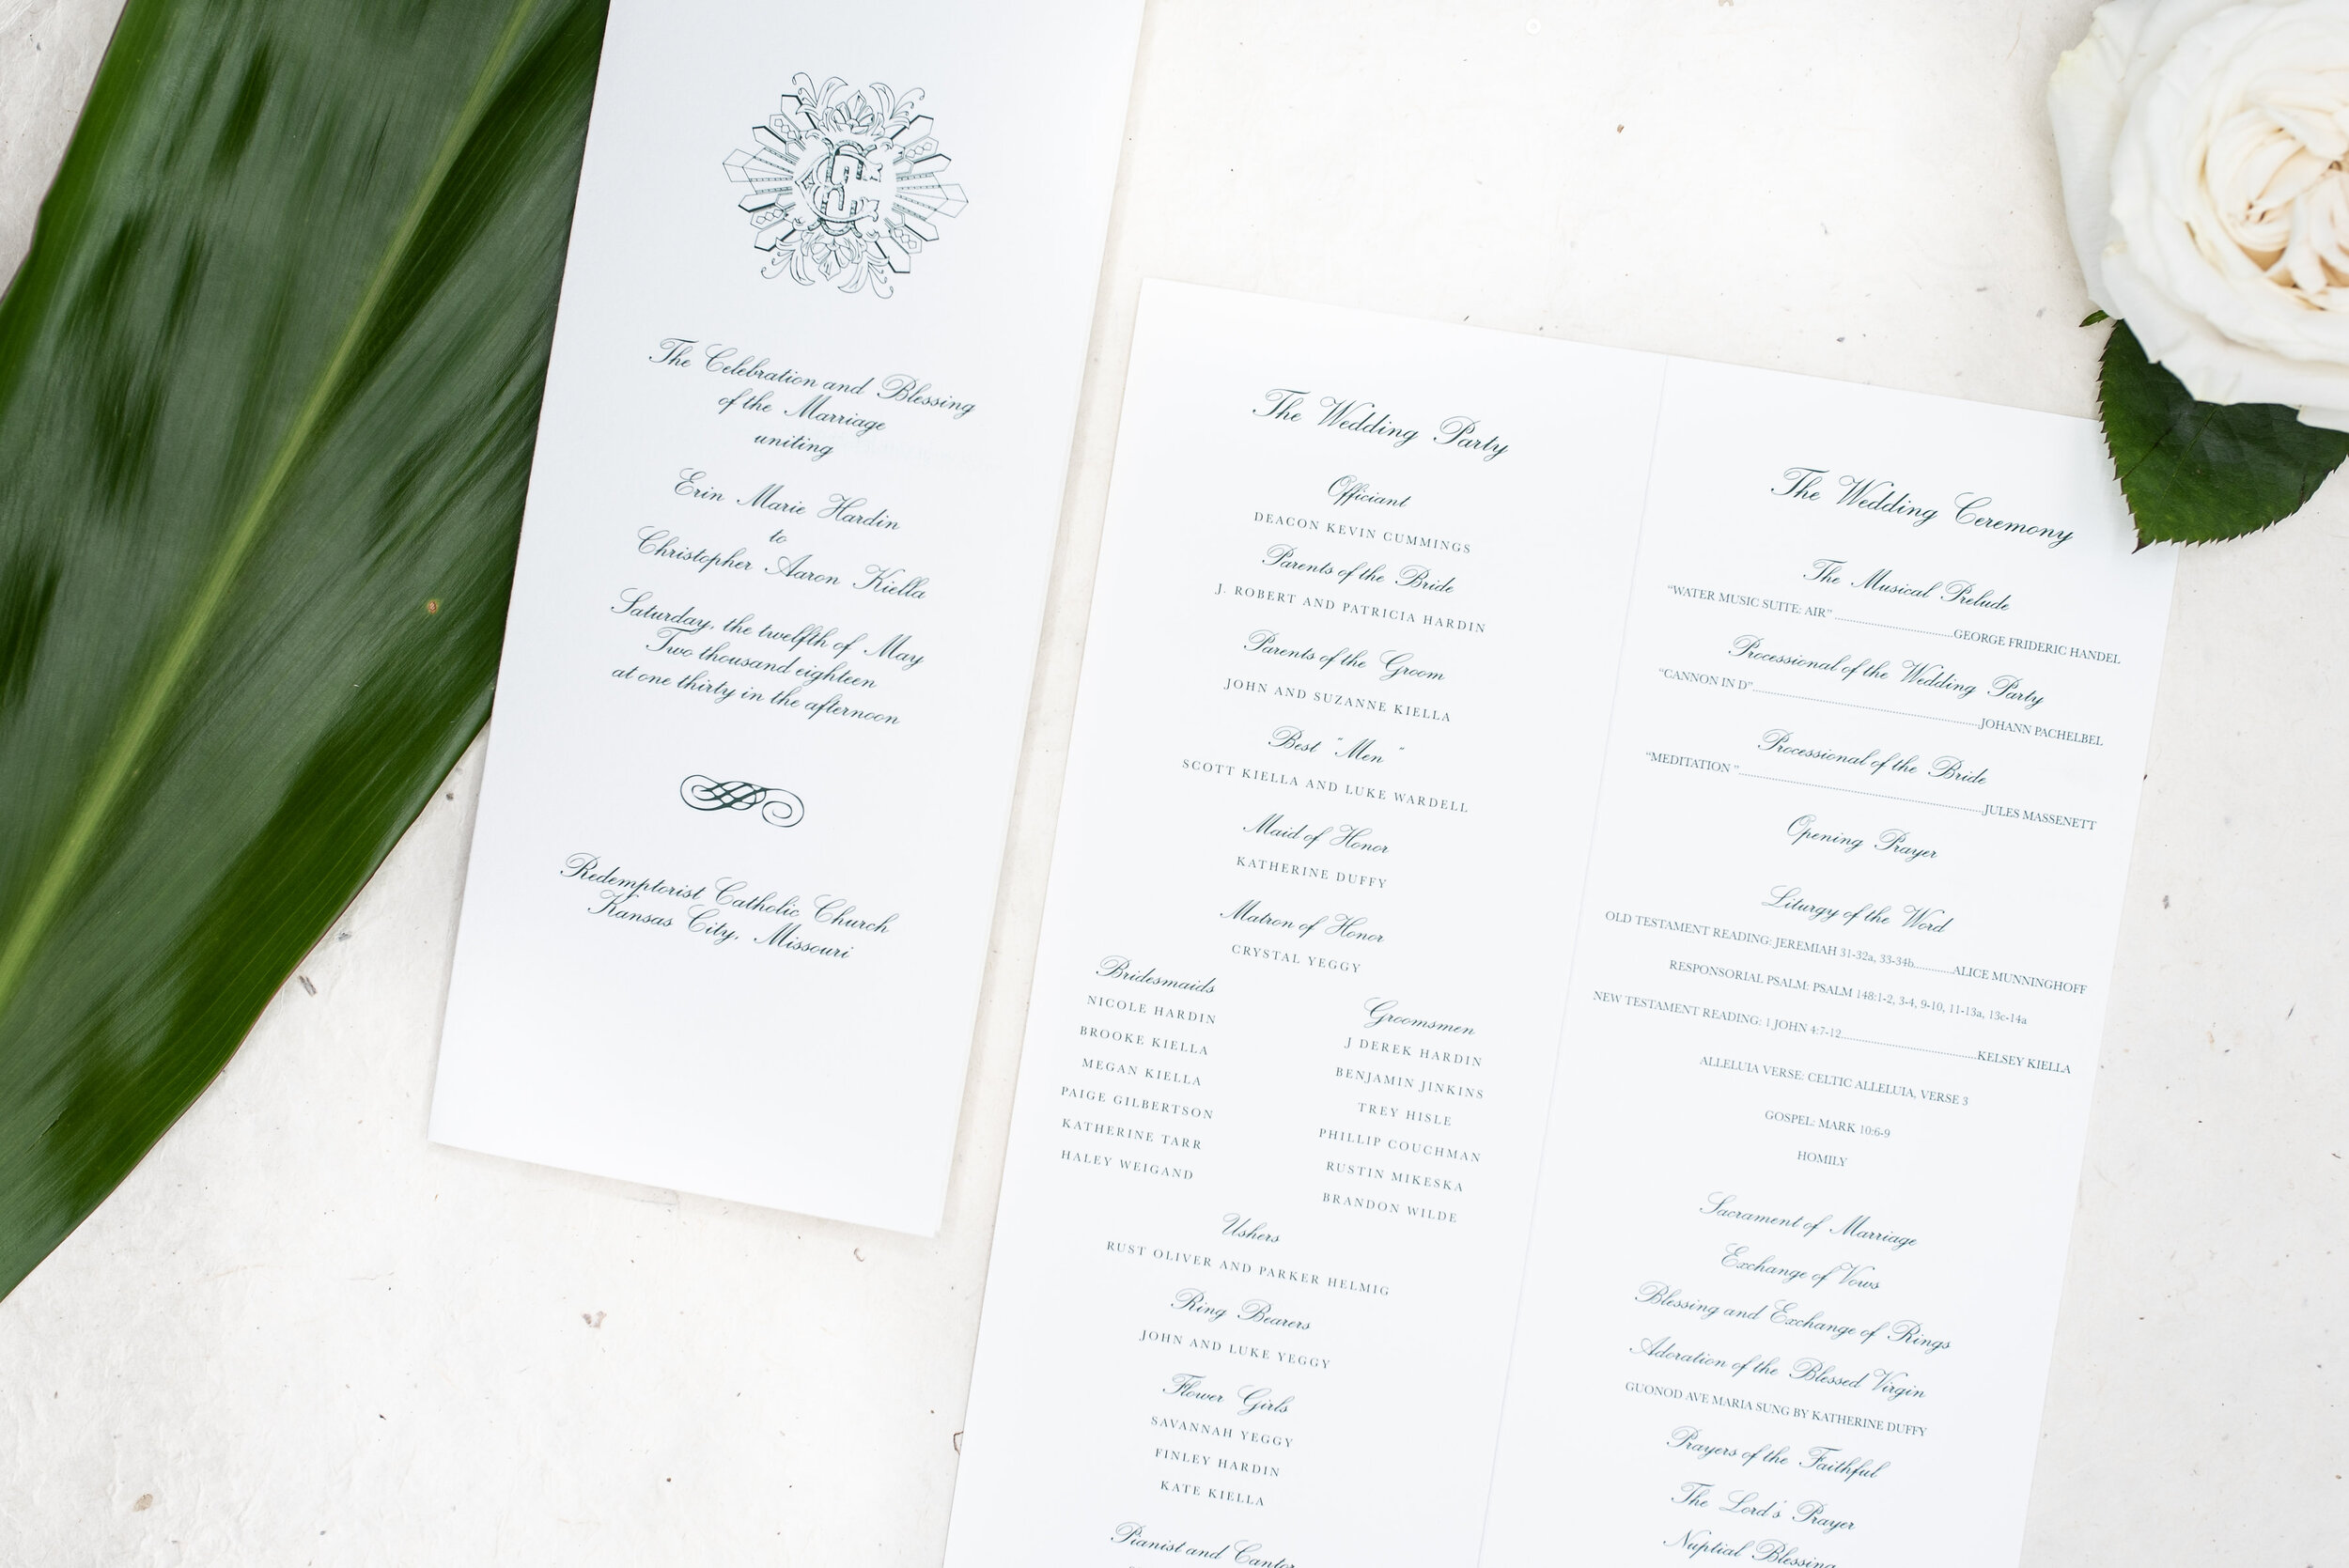 The Celebration and Blessing
of the Marriage
uniting
Erin Marie Hardin
to
Christopher Aaron Kiella
Saturday, the twelfth of May
Two thousand eighteen
at one thirty in the afternoon
Redemptorist Catholic Church
Kansas City, Missouri
The Wedding Party
Officiant
DEACON KEVIN CUMMINGS
Parents of the Bride
J. ROBERT AND PATRICIA HARDIN
Parents of the Groom
JOHN AND SUZANNE KIELLA
Best "Men"
SCOTT KIELLA AND LUKE WARDELL
Maid of Honor
KATHERINE DUFFY
Matron of Honor
CRYSTAL YEGGY
Bridesmaids
NICOLE HARDIN
BROOKE KIELLA
MEGAN KIELLA
PAIGE GILBERTSON
KATHERINE TARR
HALEY WEIGAND
Groomsmen
J DEREK HARDIN
BENJAMIN JINKINS
TREY HISLE
PHILLIP COUCHMAN
RUSTIN MIKESKA
BRANDON WILDE
Ushers
RUST OLIVER AND PARKER HELMIG
Ring Bearers
JOHN AND LUKE YEGGY
Flower Girls
SAVANNAH YEGGY
FINLEY HARDIN
KATE KIELLA
Pianist and Cantor
The Wedding Ceremony
The Musical Prelude
"WATER MUSIC SUITE: AIR"..............................GEORGE FRIDERIC HANDEL
Processional of the Wedding Party
"CANNON IN D"..............................JOHANN PACHELBEL
Processional of the Bride
"MEDITATION "..............................JULES MASSENETT
Opening Prayer
Liturgy of the Word
OLD TESTAMENT READING: JEREMIAH 31-32a, 33-34b............ALICE MUNNINGHOFF
RESPONSORIAL PSALM: PSALM 148:1-2, 3-4, 9-10, 11-13a, 13c-14a
NEW TESTAMENT READING: 1 JOHN 4:7-12..............................KELSEY KIELLA
ALLELUIA VERSE: CELTIC ALLELUIA, VERSE 3
GOSPEL: MARK 10:6-9
HOMILY
Sacrament of Marriage
Exchange of Vows
Blessing and Exchange of Rings
Adoration of the Blessed Virgin
GUONOD AVE MARIA SUNG BY KATHERINE DUFFY
Prayers of the Faithful
The Lord's Prayer
Nuptial Blessing